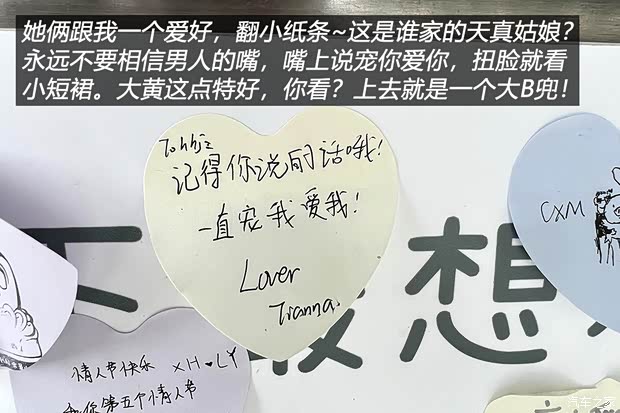 她俩跟我一个爱好，翻小纸条~这是谁家的天真姑娘？
永远不要相信男人的嘴，嘴上说宠你爱你，扭脸就看
小短裙。大黄这点特好，你看？上去就是一个大B兜！
To hhjz
记得你说的话哦！
一直宠我爱我！
CXM
想
Lover
Tranna.
情人节快乐 XH♥LY
第五个情人节
汽车之家